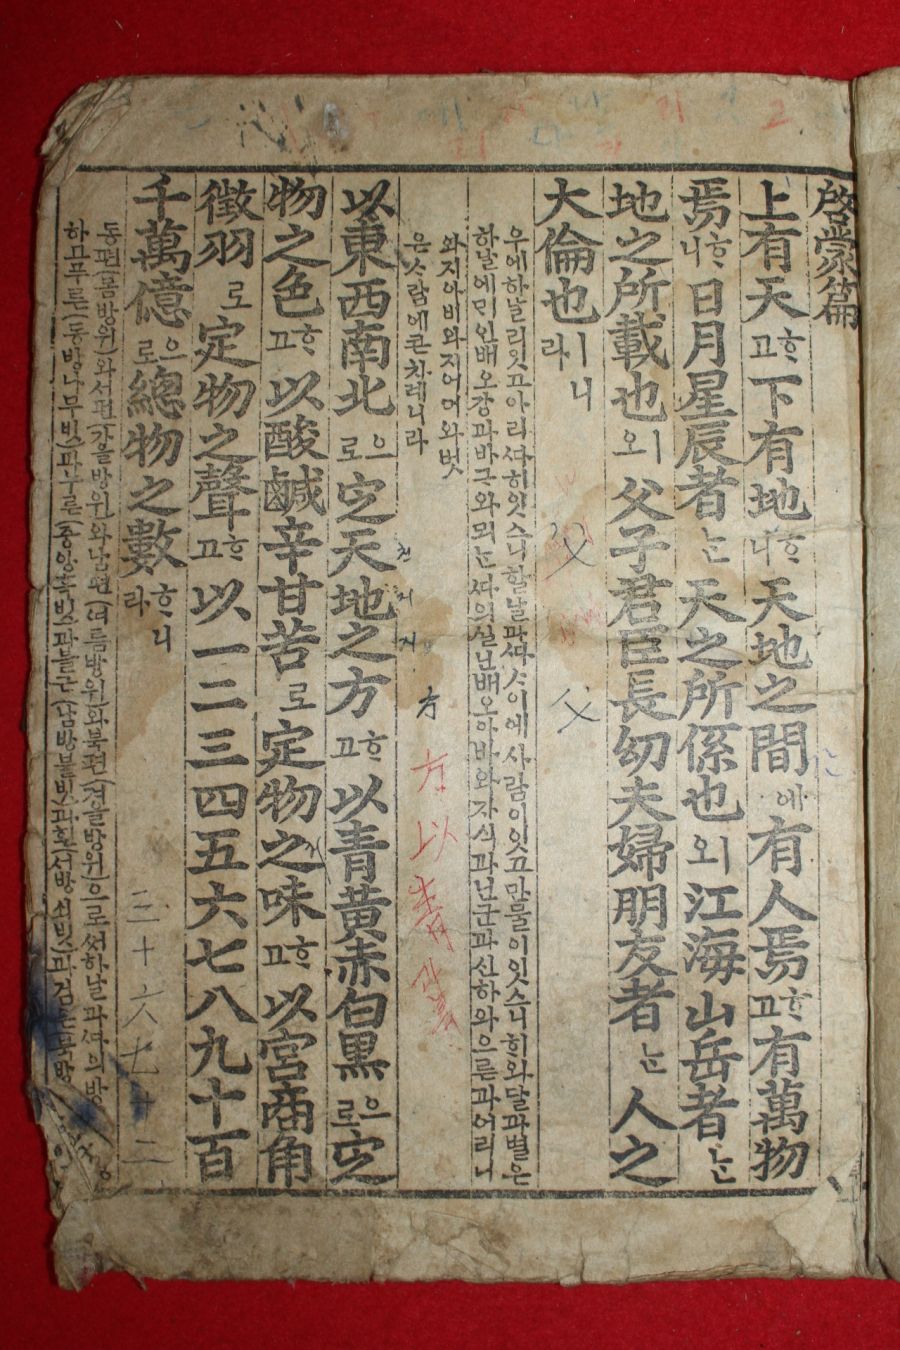 啓蒙篇
上有天고ᄒᆞ下有地니ᄒᆞ天地之間에有人焉고ᄒᆞ有萬物
焉니ᄒᆞ日月星辰者ᄂᆞᆫ天之所係也오ㅣ江海山岳者ᄂᆞᆫ
地之所載也오ㅣ父子君臣長幼夫婦朋友者ᄂᆞᆫ人之
大倫也라ㅣ니
우에하날리잇고아리ᄯᅡ히잇스니하날과ᄯᅡᄉᆞ이에사람이잇고만물이잇스니ᄒᆡ와달과별은
하날에ᄆᆡ인배오강과바ᄃᆡ와뫼ᄂᆞᆫᄯᅡ의실닌배오아바와자식과님군과신하와으른과어리니
와지아비와지어머와벗
은ᄉᆞ람에큰차례니라
以東西南北로으定天地之方고ᄒᆞ以青黃赤白黑로으定
物之色고ᄒᆞ以酸鹹辛甘苦로定物之味고ᄒᆞ以宮商角
徵羽로定物之聲고ᄒᆞ以一二三四五六七八九十百
千萬億로으總物之數라ᄒᆞ니
동편(봄방위)와서편(가을방위)와남편(여름방위)와북편(겨울방위)으로써하날과ᄯᅡ의방
하고푸른(동방나무빗)과누른(중앙흑빗)과불근(남방불빗)과흰(서방쇠빗)과검은(북방
父
父
천
지
지
方
方以青黃
三十六七十二